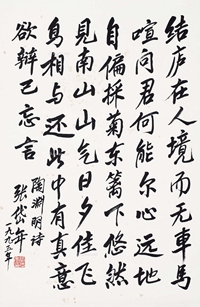 结庐在人境而无車馬
喧问君何能尔心远地
自偏採菊东篱下悠然
見南山山气日夕佳飞
鸟相与还此中有真意
欲辩已忘言
陶渊明诗
张岱年
一九九三年